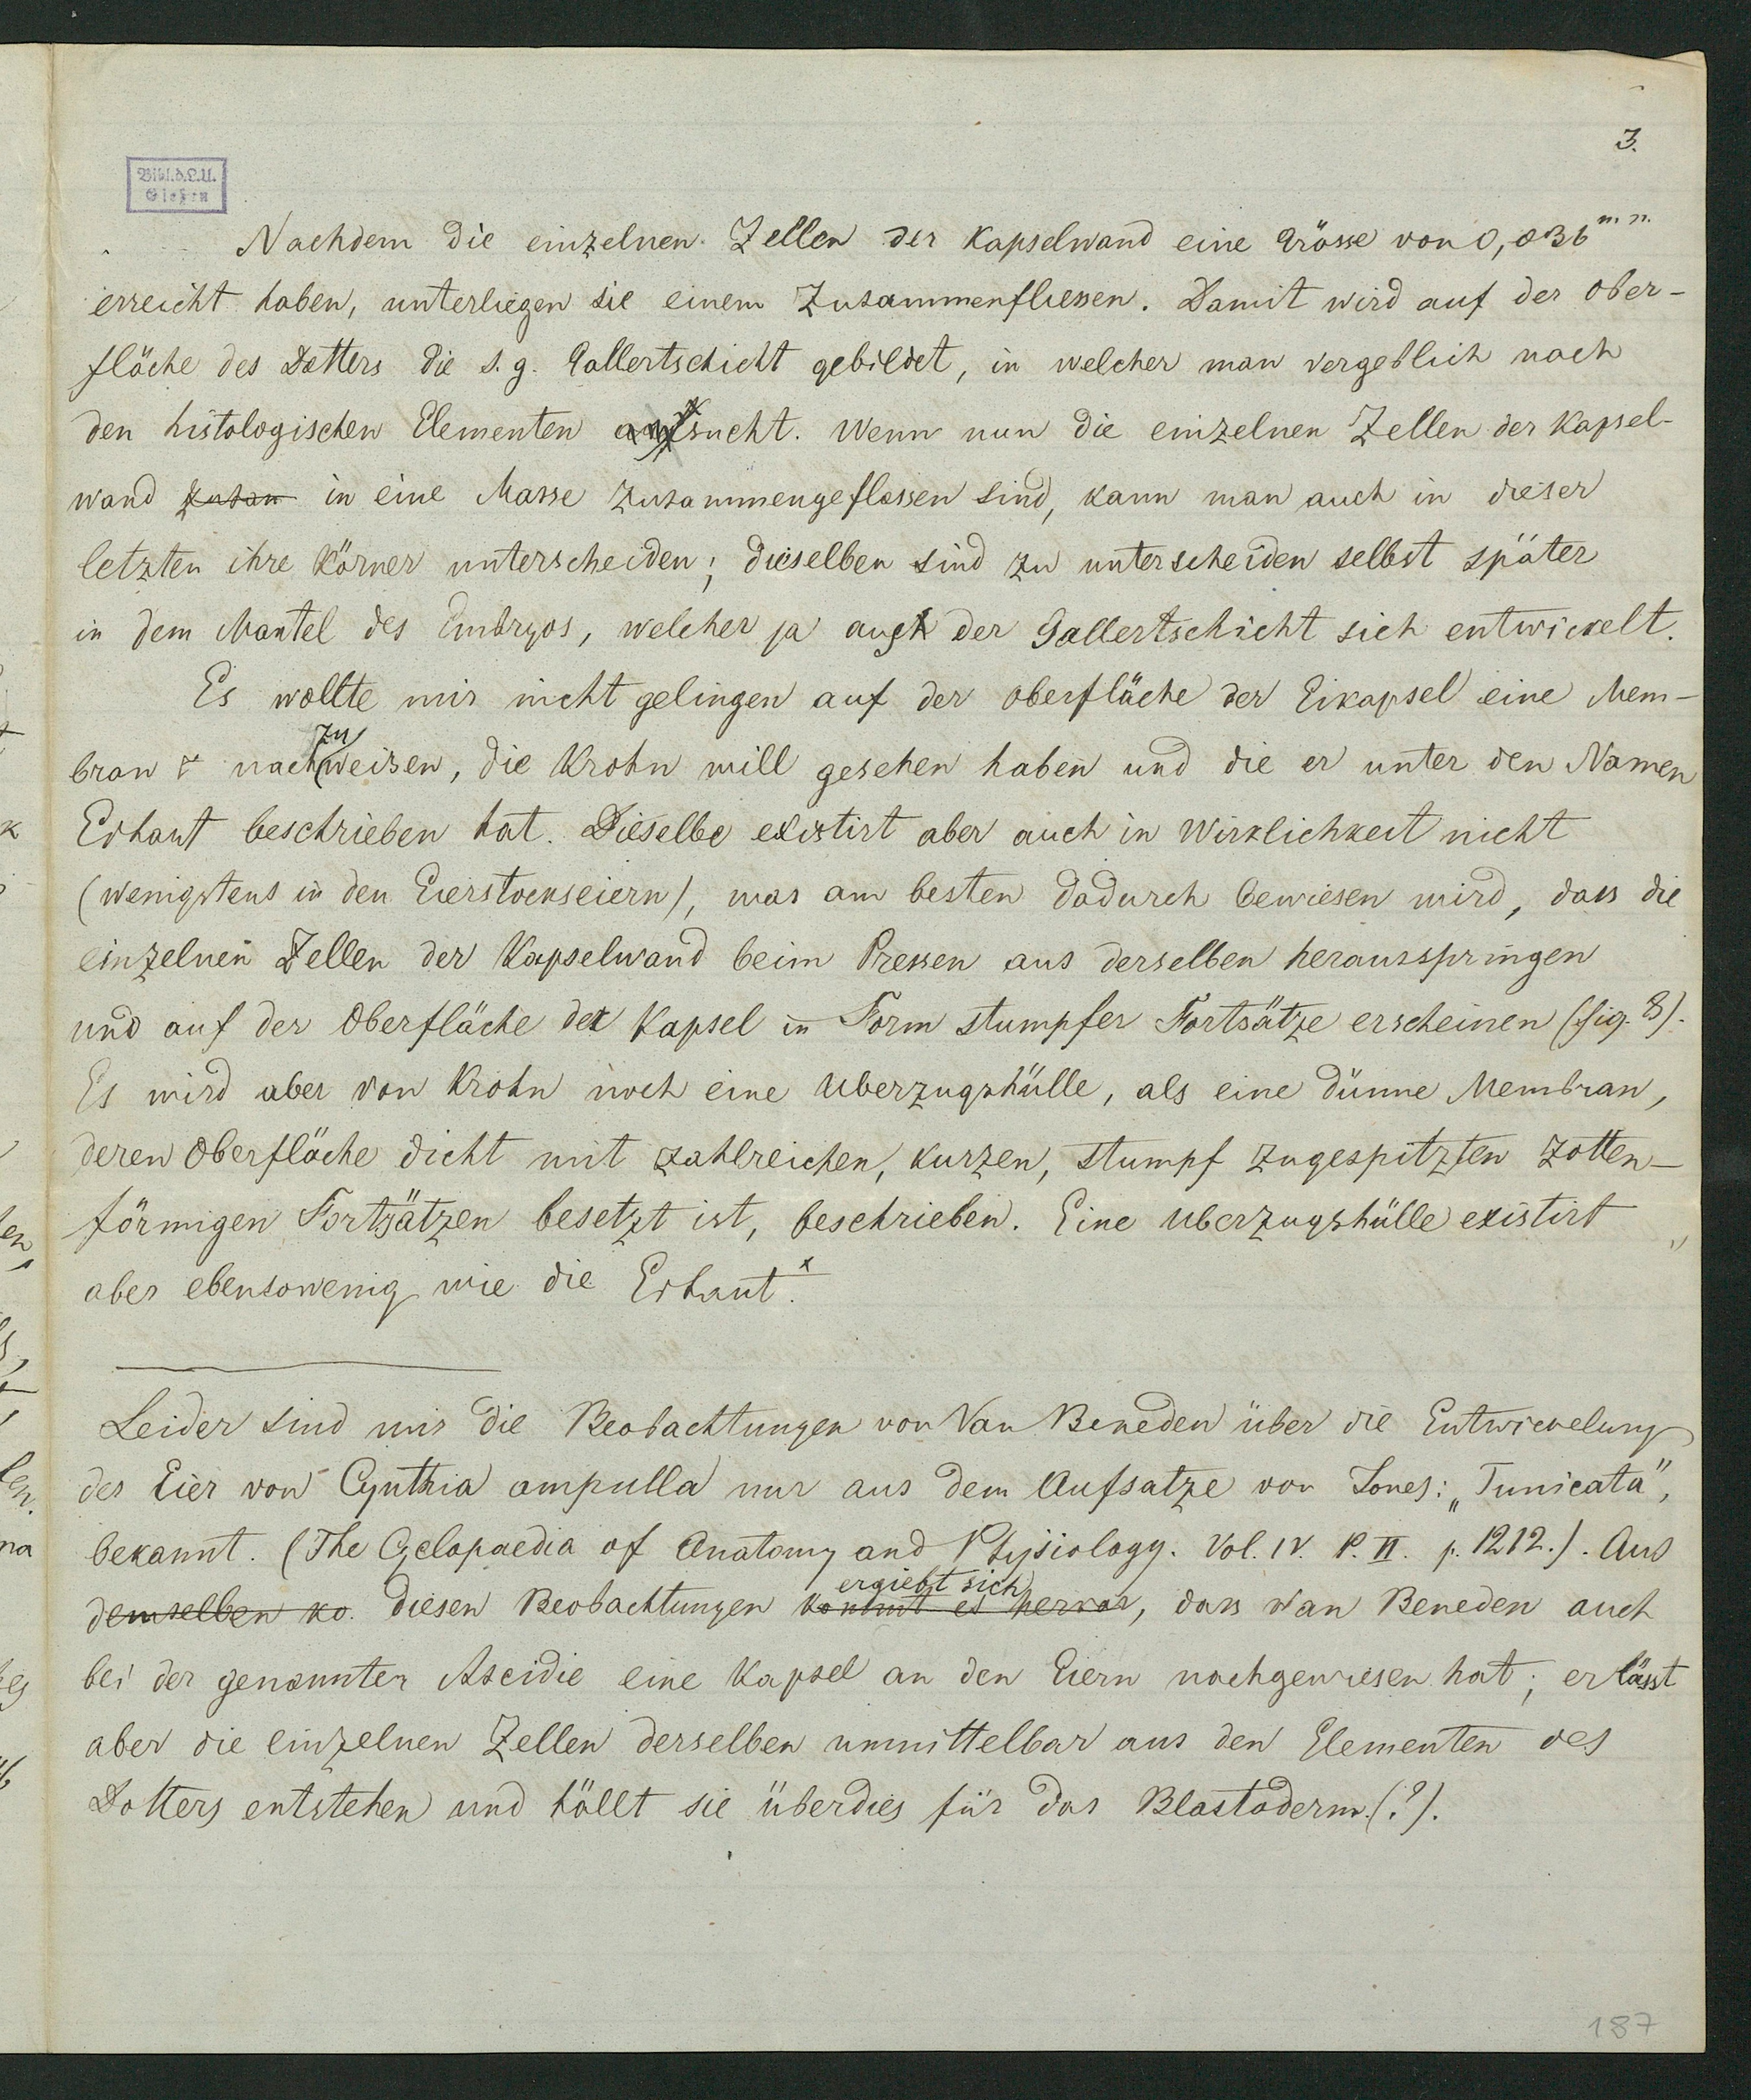 3.
Bibl.d.L.U.
Gießen
Nachdem die einzelnen Zellen der Kapselwand eine Grösse von 0,036 m.m.
erreicht haben, unterliegen sie einem Zusammenfliessen. Damit wird auf der Ober-
fläche des Dotters die s.g. Gallertschicht gebildet, in welcher man vergeblich nach
den histologischen Elementen sucht. Wenn nun die einzelnen Zellen der Kapsel-
wand zusam in eine Masse zusammengeflossen sind, kann man auch in dieser
letzten ihre Körner unterscheiden; dieselben sind zu unterscheiden selbst später
in dem Mantel des Embryos, welcher ja aus der Gallertschicht sich entwickelt.
Es wollte mir nicht gelingen auf der Oberfläche der Eikapsel eine Mem-
bran nachzuweisen, die Krohn will gesehen haben und die er unter den Namen
Eihaut beschrieben hat. Dieselbe existirt aber auch in Wirklichkeit nicht
(wenigstens in den Eierstockseiern), was am besten dadurch bewiesen wird, dass die
einzelnen Zellen der Kapselwand beim Pressen aus derselben herausspringen
und auf der Oberfläche der Kapsel in Form stumpfer Fortsätze erscheinen (fig. 8).
Es wird aber von Krohn noch eine Uberzugshülle, als eine dünne Membran,
deren Oberfläche dicht mit zahlreichen, kurzen, stumpf zugespitzten zotten-
förmigen Fortsätzen besetzt ist, beschrieben. Eine Uberzugshülle existirt
aber ebensowenig wie die Eihaut x.
Leider sind mir die Beobachtungen von Van Beneden über die Entwickelung
der Eier von Cynthia ampulla nur aus dem Aufsatze von Jones: „Tunicata",
bekannt. (The Cyclopaedia of Anatomy and Physiology. Vol. IV. P. II. p. 1212.). Aus
demselben ko. diesen Beobachtungen kommt es hervor ergiebt sich, dass Van Beneden auch
bei der genannter Ascidie eine Kapsel an den Eiern nachgewiesen hat; er lässt
aber die einzelnen Zellen derselben unmittelbar aus den Elementen des
Dotters entstehen und hällt sie überdies für das Blastoderm (?).
187